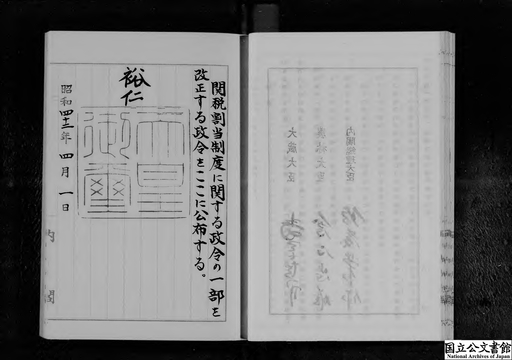 関税割当制度に関する政令の一部を
改正する政令をここに公布する。
裕仁
天皇
御璽
昭和四十二年四月一日
内閣
内閣総理大臣
農林大臣
大蔵大臣
国立公文書館
National Archives of Japan